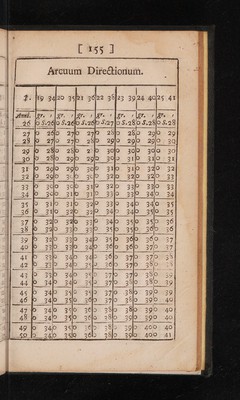 [ 155 ]
Arcuum Directionum.
19 34 20 35 21 36 22 38 23 39 24 40 25 41
Anni. gr. gr. gr. gr. gr. gr. gr.
26 0 S.26 0 S.26 0 S.26 0 S.27 0 S.28 0 S.28 0 S.28
27 0 26 0 27 0 27 0 28 0 28 0 29 0 29
28 0 27 0 27 0 28 0 29 0 29 0 29 0 30
29 0 28 0 28 0 30 0 30 0 30 0 30
30 0 28 0 29 0 29 0 30 0 31 0 31 0 31
31 0 29 0 29 0 30 0 31 0 31 0 32
32 0 29 0 30 0 32 0 32 0 32 0 33
33 0 30 0 30 0 31 0 32 0 33 0 33 0 33
34 0 30 0 31 0 33 0 33 0 33 0 34
35 0 31 0 31 0 32 0 33 0 34 0 34 0 35
36 0 31 0 32 0 34 0 34 0 35 0 35
37 0 32 0 32 0 33 0 34 0 35 0 35 0 36
38 0 32 0 33 0 33 0 35 0 35 0 36 0 36
39 0 32 0 33 0 35 0 36 0 36 0 37
40 0 33 0 33 0 34 0 36 0 36 0 37 0 37
41 0 33 0 34 0 34 0 36 0 37 0 37 0 38
42 0 33 0 34 0 37 0 37 0 38
43 0 33 0 34 0 35 0 37 0 37 0 38
44 0 33 0 34 0 35 0 37 0 38 0 39
45 0 34 0 35 0 37 0 38 0 39
46 0 34 0 35 0 37 0 38 0 39 0 40
47 0 34 0 35 0 38 0 39 0 40
48 0 34 0 35 0 36 0 38 0 39 0 39 0 40
49 0 34 0 35 0 36 0 38 0 39 0 40 0 40
50 0 34 0 35 0 36 0 38 0 39 0 40 0 41